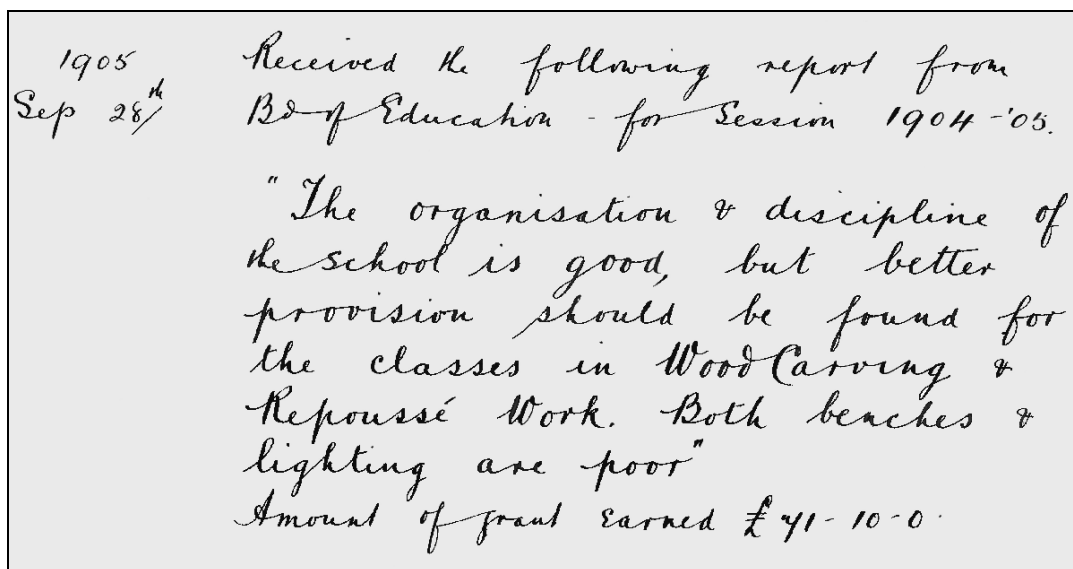 1905 Received the following report from
Sep 28/th Bd of Education - for Session 1904-'05.
"The organisation & discipline of
the School is good, but better
provision should be found for
the classes in Wood Carving &
Repoussé Work. Both benches &
lighting are poor"
Amount of grant earned £71-10-0.